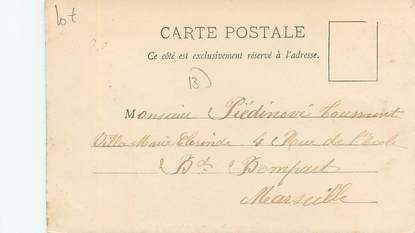 lot
CARTE POSTALE
Ce côté est exclusivement réservé à l'adresse.
13
Monsieur Piédinovi Toussaint
Villa Marie 4 Rue de l'Ecole
Bd Bompart
Marseille